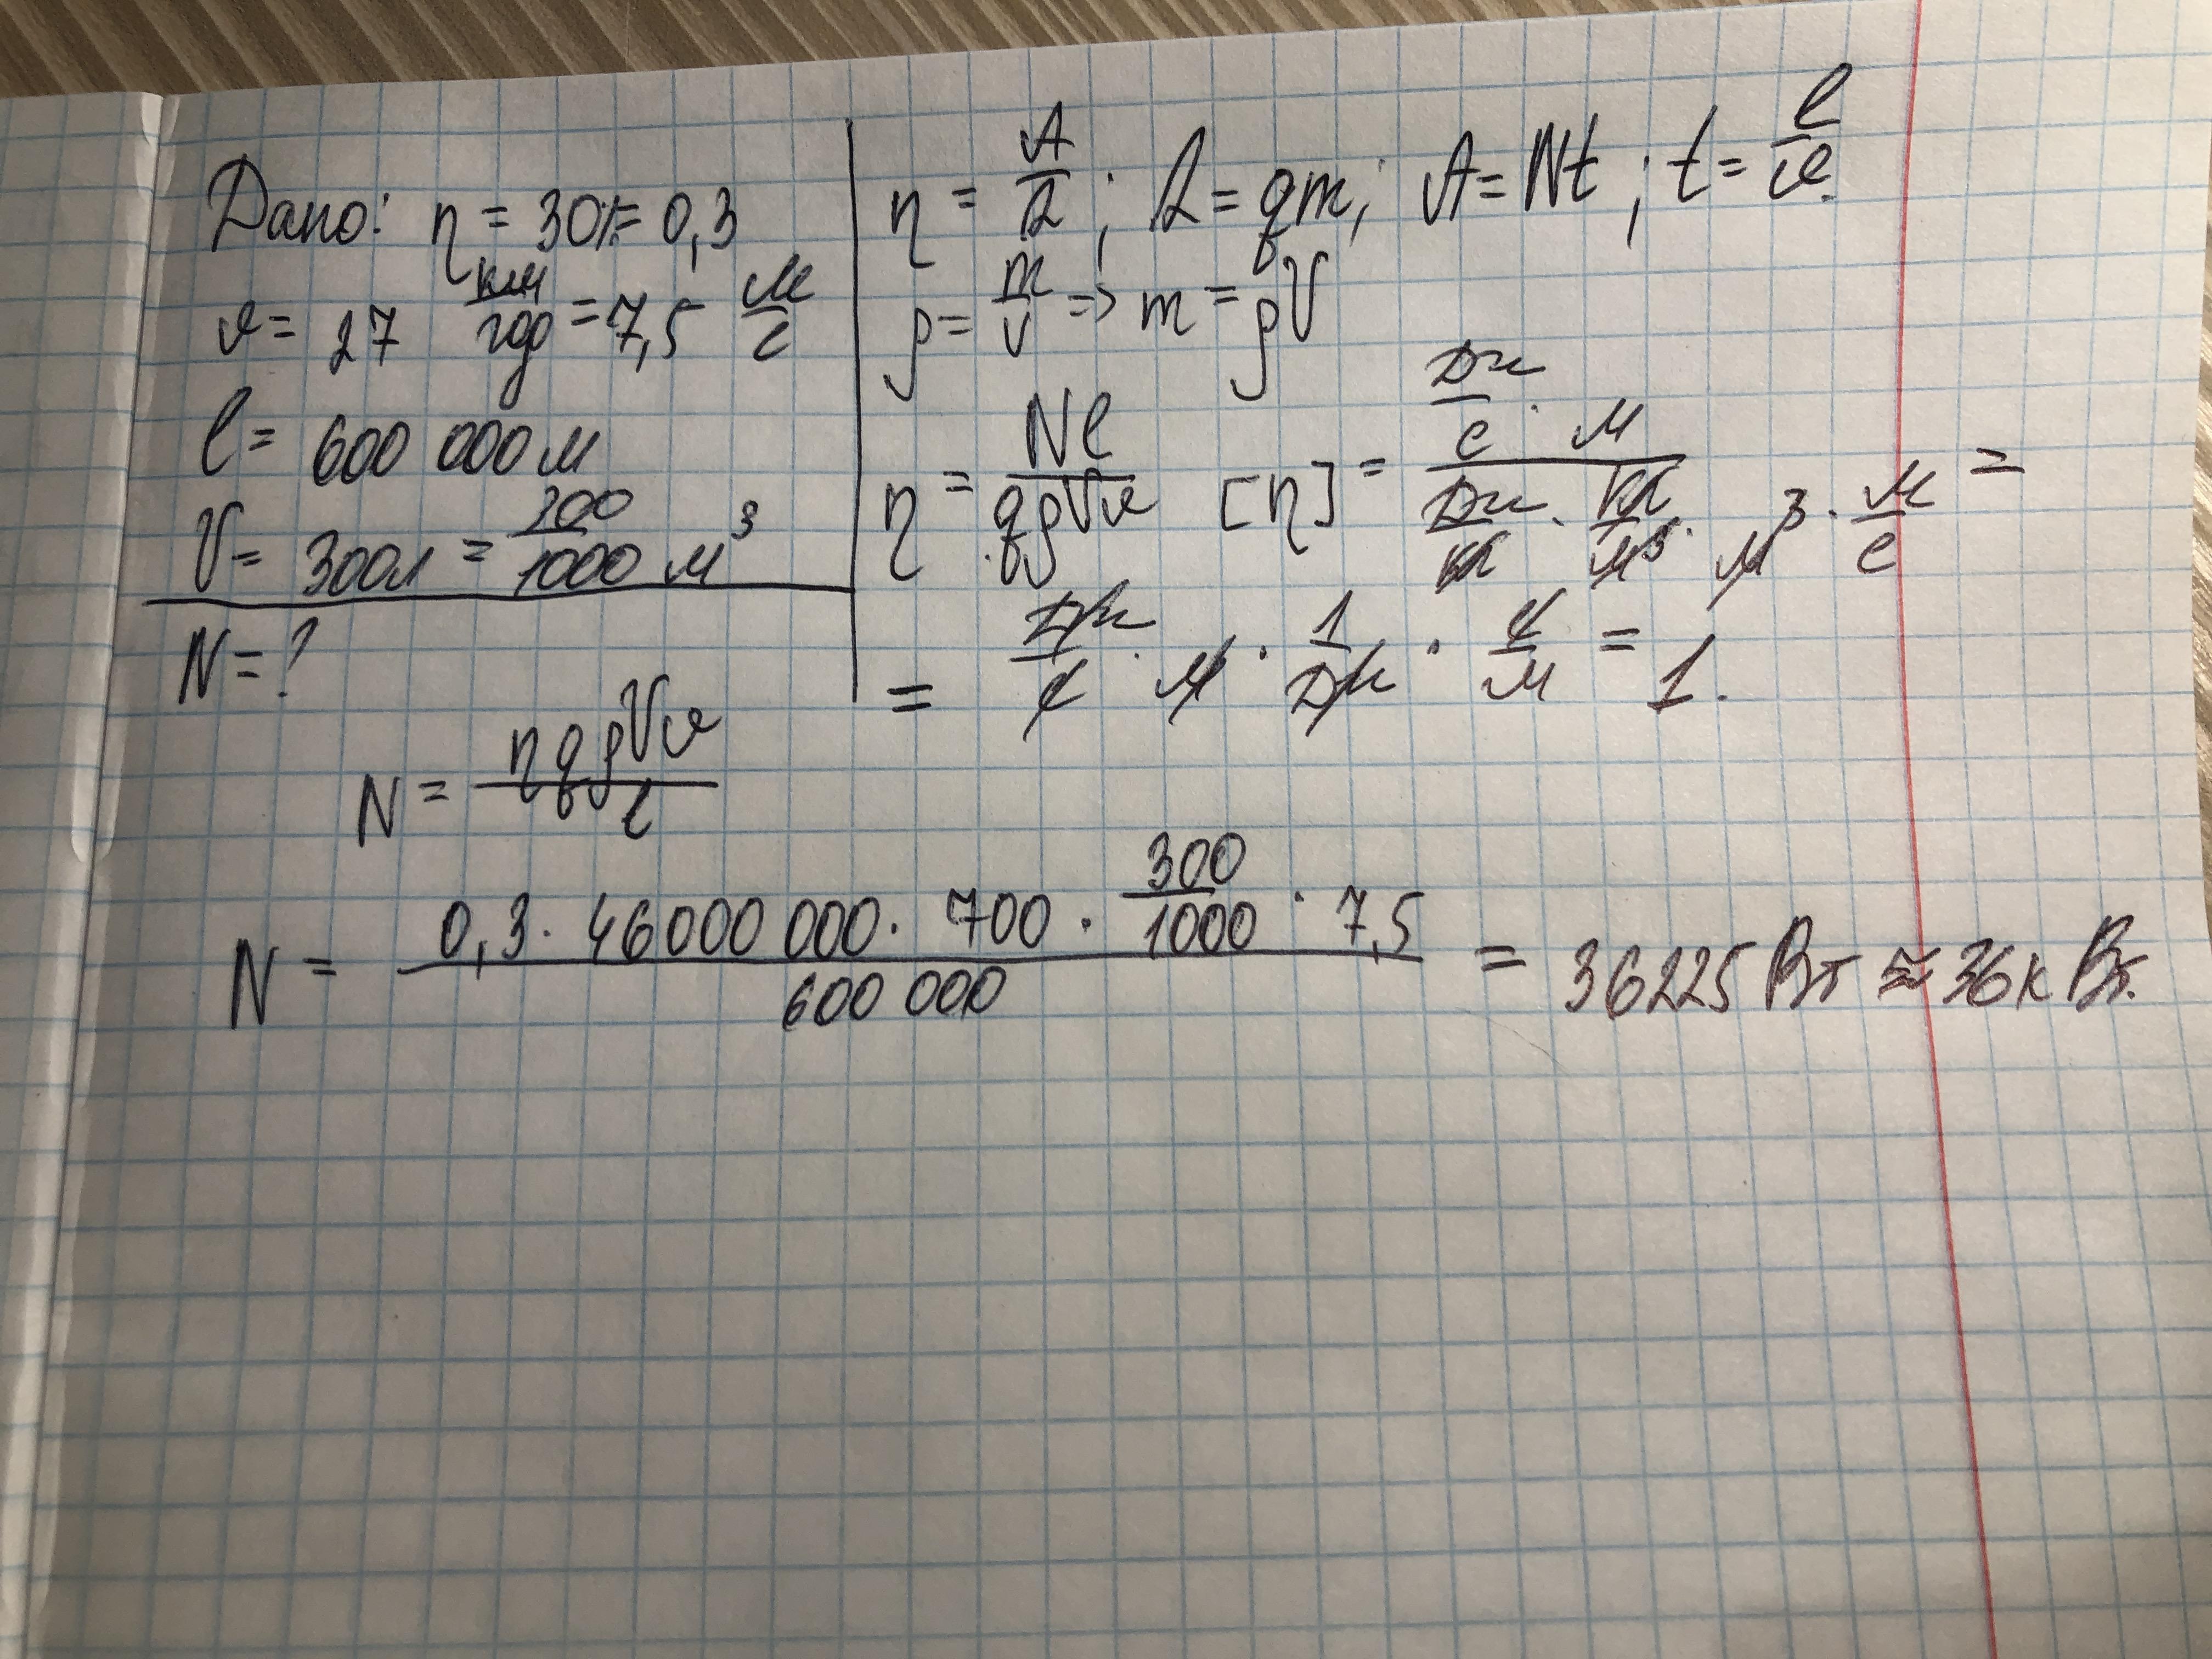 Дано: η = 30% = 0,3
v = 27 км/год = 7,5 м/с
l = 600 000 м
V = 300л = 300/1000 м³
N = ?
η = A/Q ; Q = qm ; A = Nt ; t = l/v.
ρ = m/V => m = ρV
η = Nl/qρVv [η] = Дж/с · м / Дж/кг · кг/м³ · м³ · м/с =
= Дж/с · м · 1/Дж · с/м = 1.
N = ηqρVv/l
N = 0,3 · 46000 000 · 700 · 300/1000 · 7,5 / 600 000 = 36225 Вт ≈ 36 кВт.